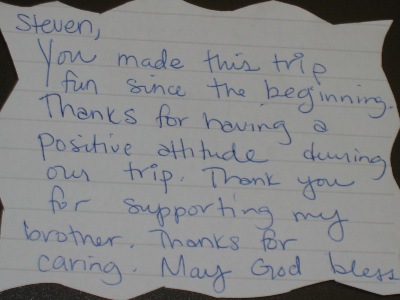 Steven,
You made this trip
fun since the beginning.
Thanks for having a
positive attitude during
our trip. Thank you
for supporting my
brother. Thanks for
caring. May God bless